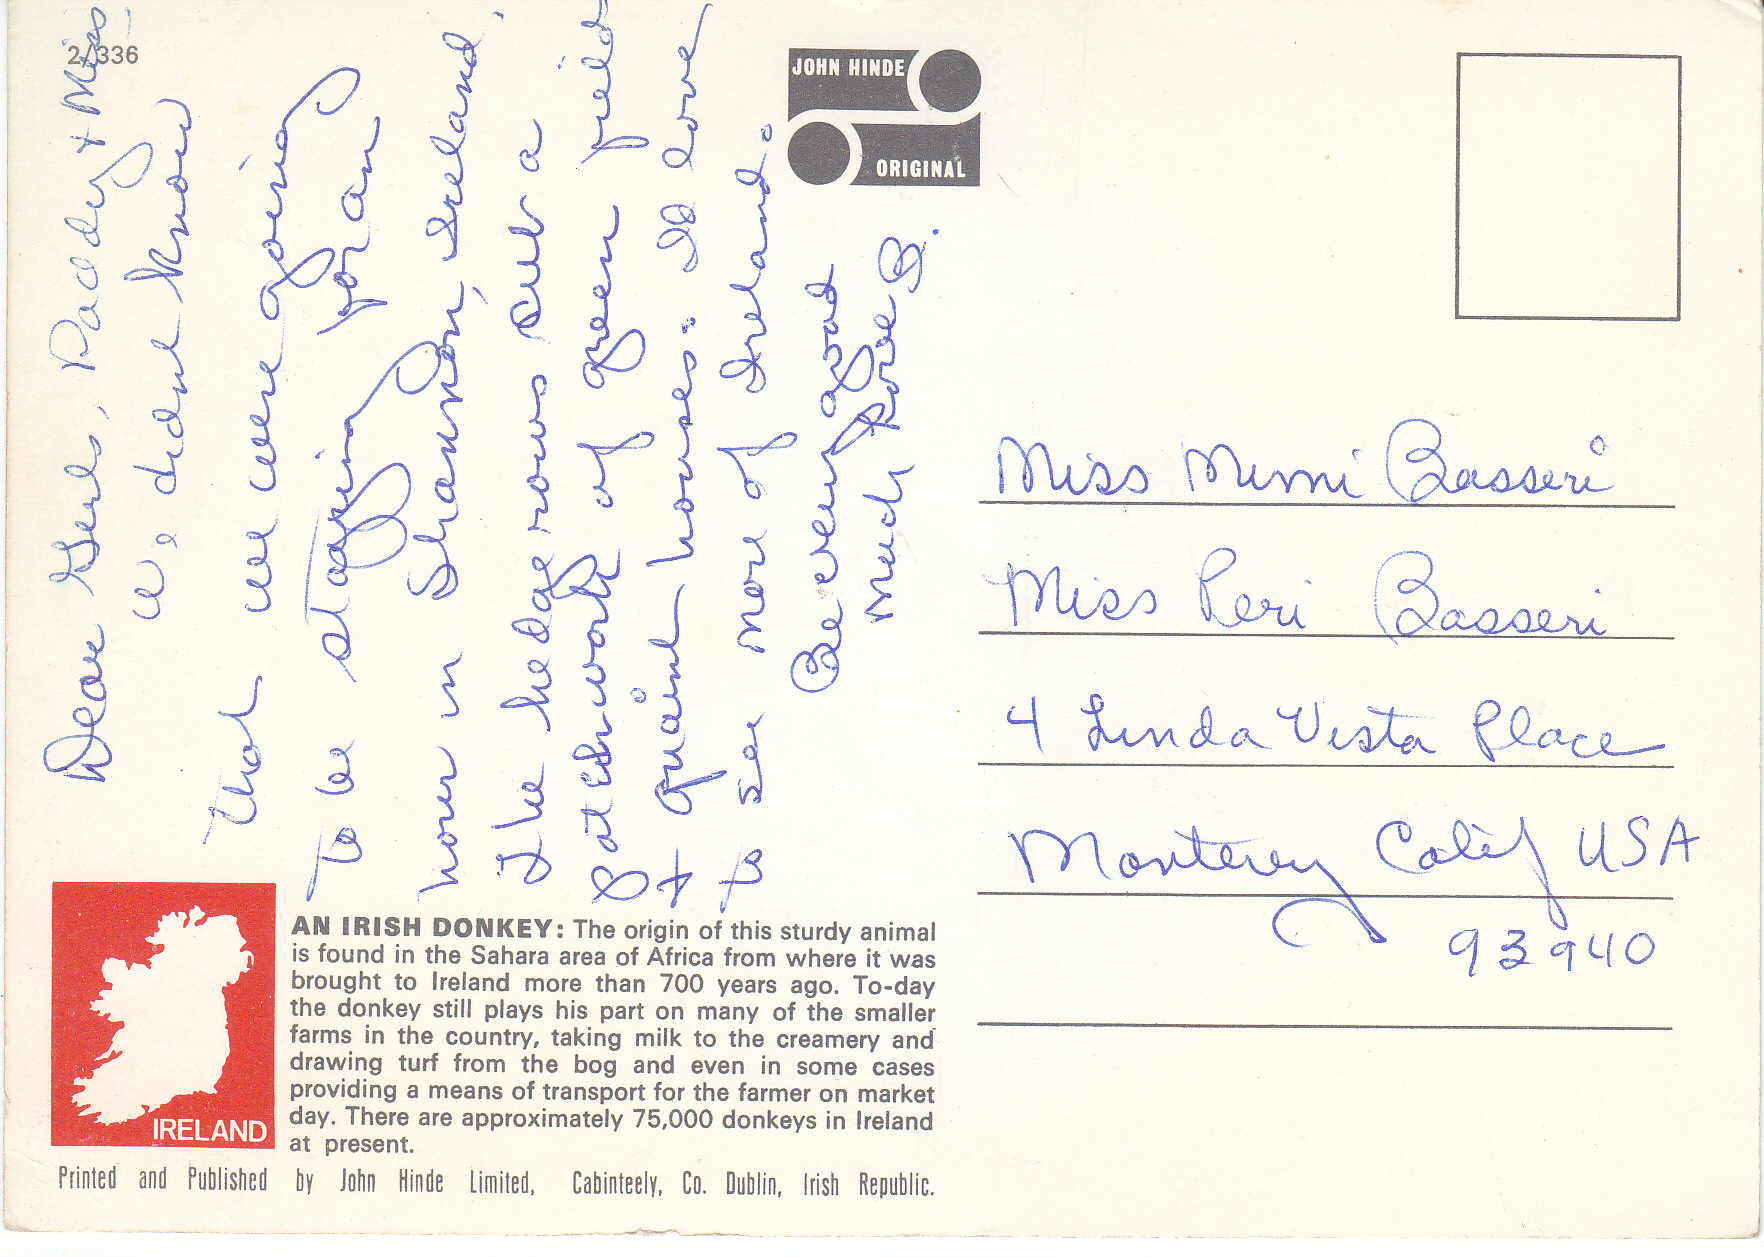 2/336
Dear Girls, Paddy + Miss
didnt know
that we were going
to be stopping for an
hour in Shannon, Ireland.
The hedge rows cut a
patchwork of green field
+ quaint houses. Id love
to see more of Ireland.
Be very good
Much love B.
JOHN HINDE
ORIGINAL
Miss Mimi Basseri
Miss Peri Basseri
4 Linda Vista Place
Monterey Calif USA
93940
IRELAND
AN IRISH DONKEY: The origin of this sturdy animal
is found in the Sahara area of Africa from where it was
brought to Ireland more than 700 years ago. To-day
the donkey still plays his part on many of the smaller
farms in the country, taking milk to the creamery and
drawing turf from the bog and even in some cases
providing a means of transport for the farmer on market
day. There are approximately 75,000 donkeys in Ireland
at present.
Printed and Published by John Hinde Limited, Cabinteely, Co. Dublin, Irish Republic.